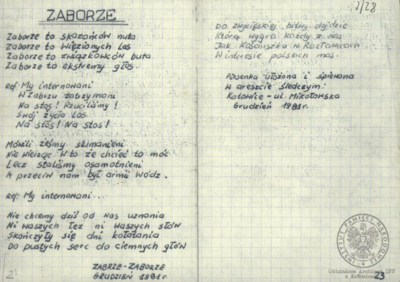 ZABORZE
Zaborze to skazańców nuta
Zaborze to więzionych los
Zaborze to związkowców buta
Zaborze to ekstremy głos.
ref: My internowani
W Zabrzu zatrzymani
Na stos! Rzuciliśmy!
Swój życia los
Na stos! Na stos!
Mówili żeśmy skłamaniemi
Nie wierząc w to że chcieć to móc
Lecz staliśmy osamotnieni
A przeciw nam był armii wódz.
Ref: My internowani...
Nie chcemy dziś od was uznania
Ni waszych łez ni waszych słów
Skończyły się dni kołatania
Do pustych serc do ciemnych głów
ZABRZE-ZABORZE
GRUDZIEŃ 1981r.
7/28
Do zwycięskiej bitwy dojdzie
Którą wygra każdy z nas
Jak Kościuszko w Racławicach
W interesie polskich mas.
Piosenka ułożona i śpiewana
w areszcie śledczym:
Katowice - ul. Mikołowska
Grudzień 1981r.
INSTYTUT PAMIĘCI NARODOWEJ
Oddziałowe Archiwum IPN
w Katowicach
23